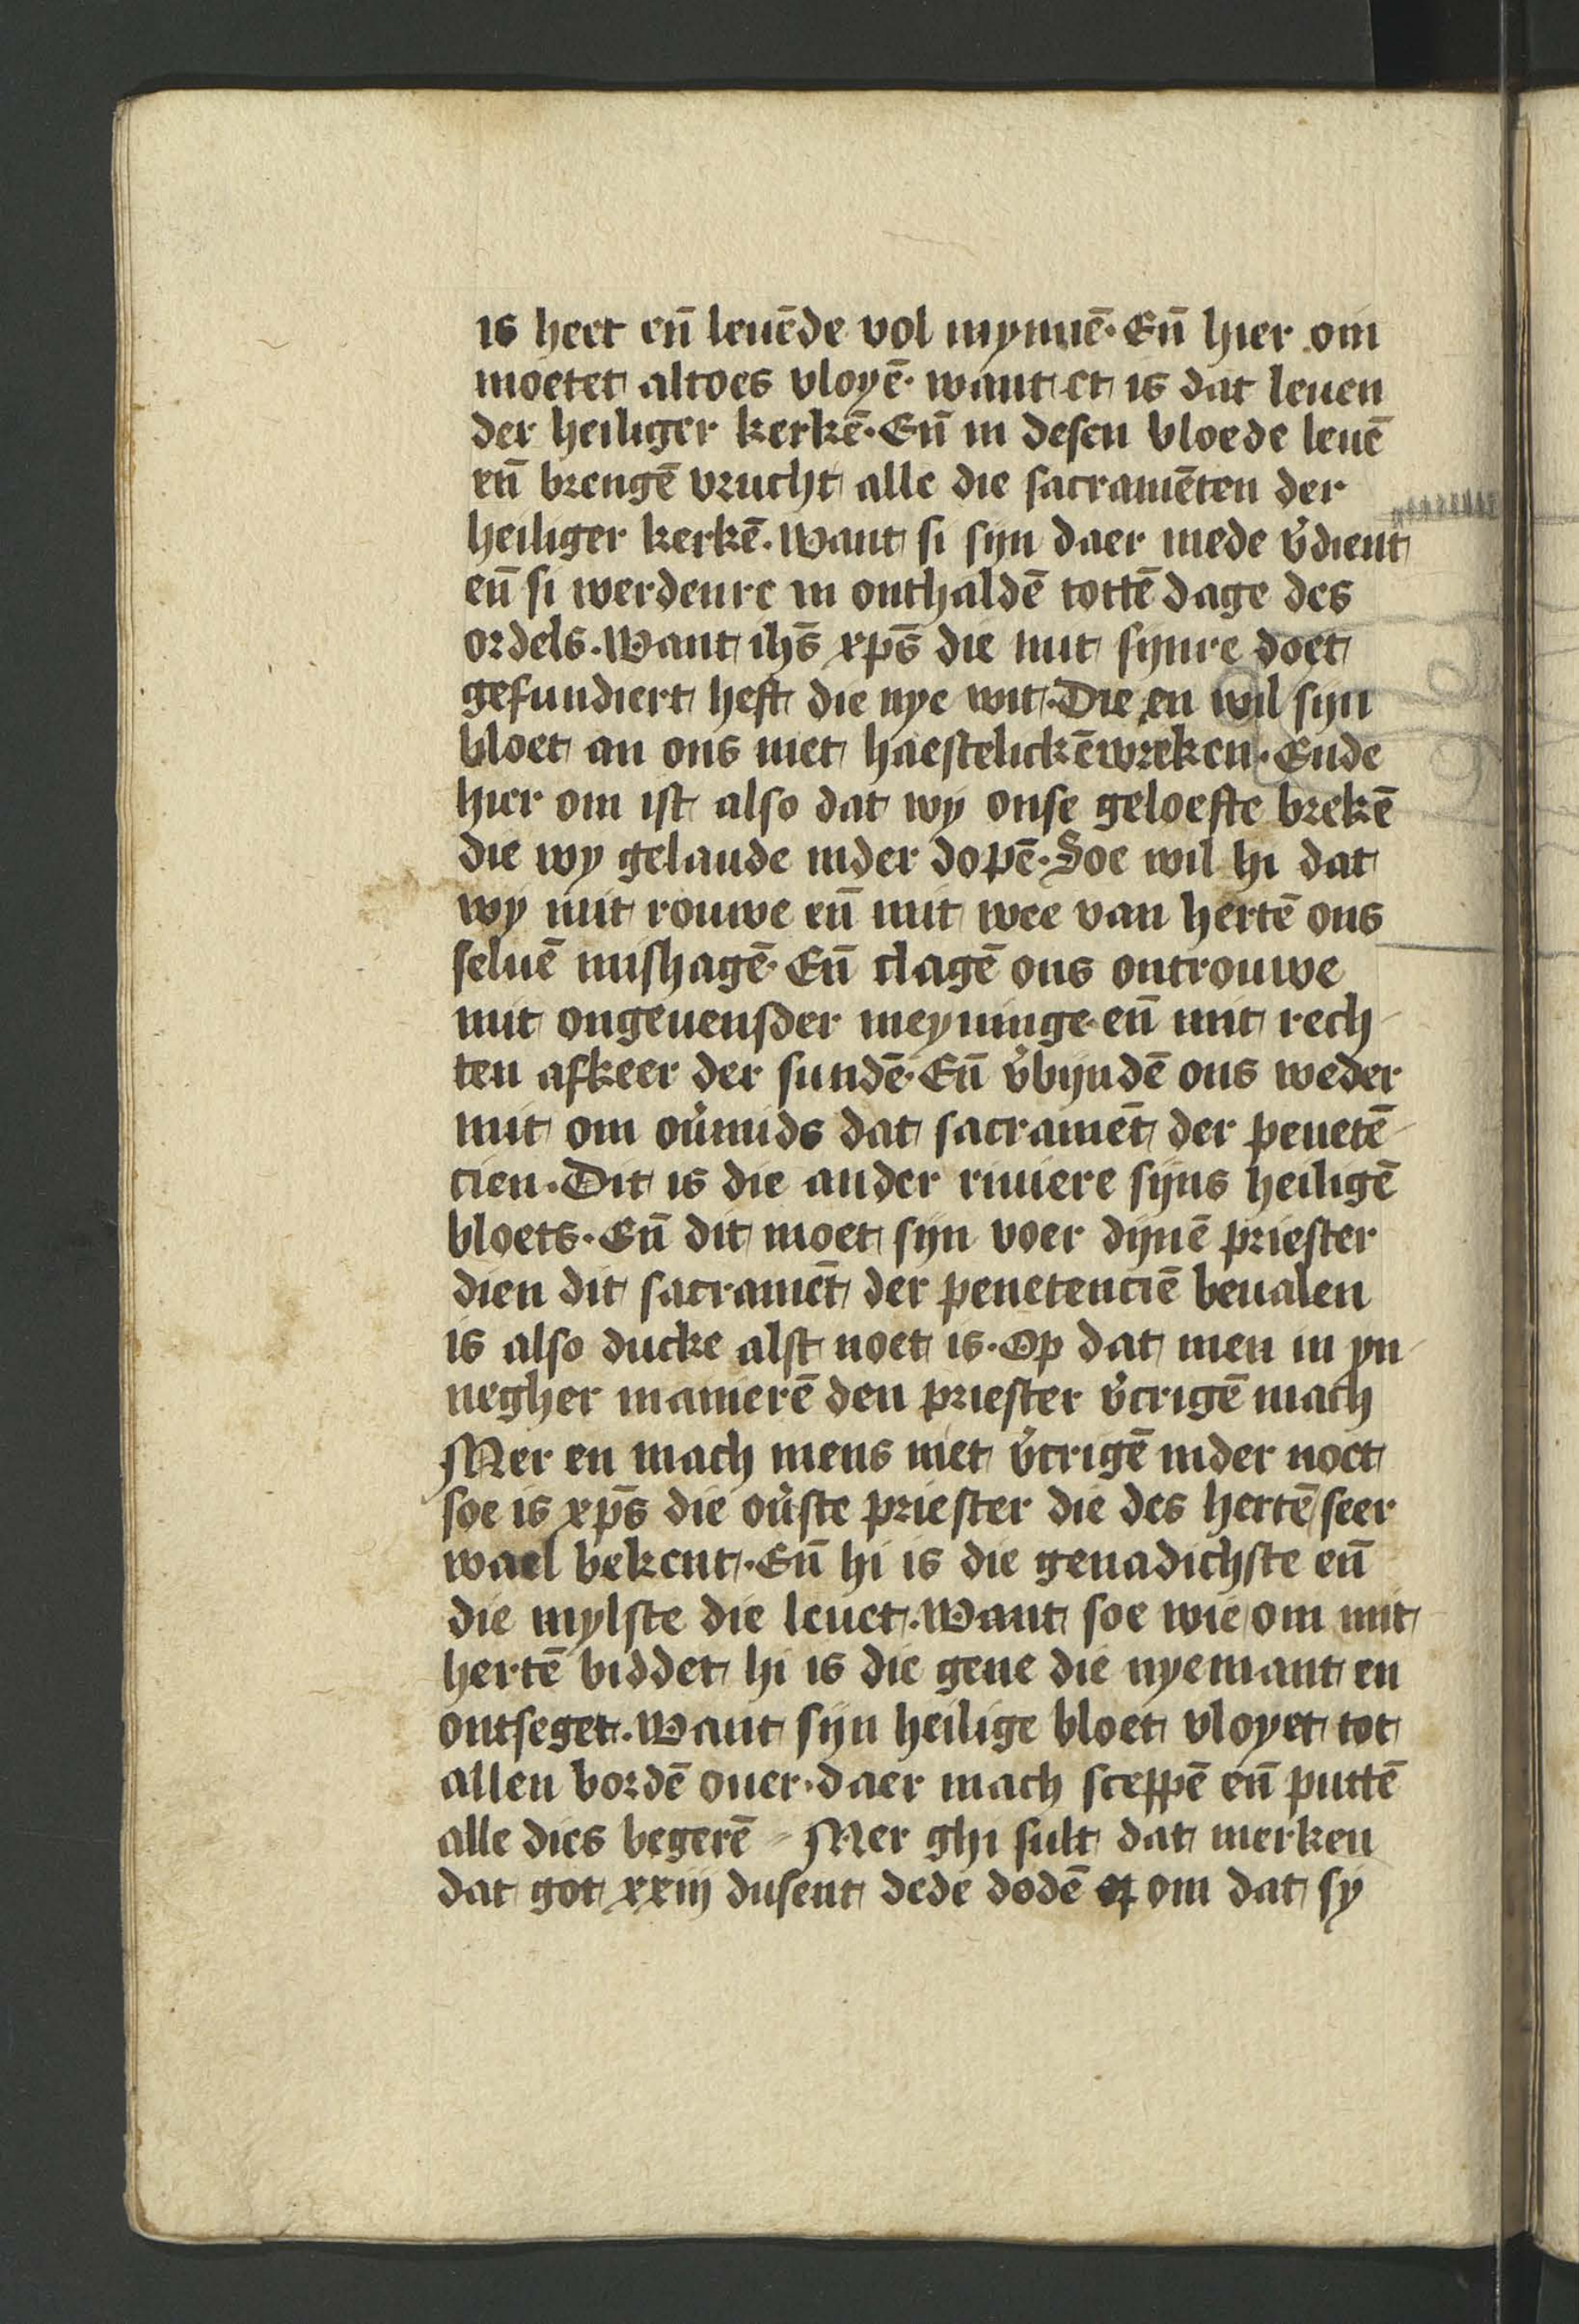 is heet eñ leuēde vol mynnē. Eñ hier om
moetet altoes vloyē. want et is dat leuen
der heiliger kerkē. Eñ in desen bloede leuē
eñ brengē vrucht alle die sacramēten der
heiliger kerkē. Want si sijn daer mede v̓dient
eñ si werdenre in onthaldē tottē dage des
ordels. Want ihs̄ xps̄ die mit sijnre doet
gefundiert heft die nye wit. Die en wil sijn
bloet an ons niet haestelickē wreken. Ende
hier om ist also dat wy onse geloefte brekē
die wy gelaude inder dopē. Soe wil hi dat
wy mit rouwe eñ mit wee van hertē ons
seluē mishagē. Eñ clagē ons ontrouwe
mit ongeuensder meyninge. eñ mit rech
ten afkeer der sundē. Eñ v̓bijndē ons weder
mit om ou̓mids dat sacramēt der penetē
cien. Dit is die ander riuiere sijns heiligē
bloets. Eñ dit moet sijn voer dijnē priester
dien dit sacramēt der penetenciē beualen
is also ducke alst noet is. Op dat men in yn
negher manierē den priester v̓crigē mach
Mer en mach mens niet v̓crigē inder noet
soe is xps̄ die ou̓ste priester die des hertē seer
wael bekent. Eñ hi is die genadichste eñ
die mylste die leuet. Want soe wie om mit
hertē biddet hi is die gene die nyemant en
ontseget. Want sijn heilige bloet vloyet tot
allen bordē ouer. daer mach sceppē eñ puttē
alle dies begerē Mer ghi sult dat merken
dat got xxiij dusent dede dodē om dat sy